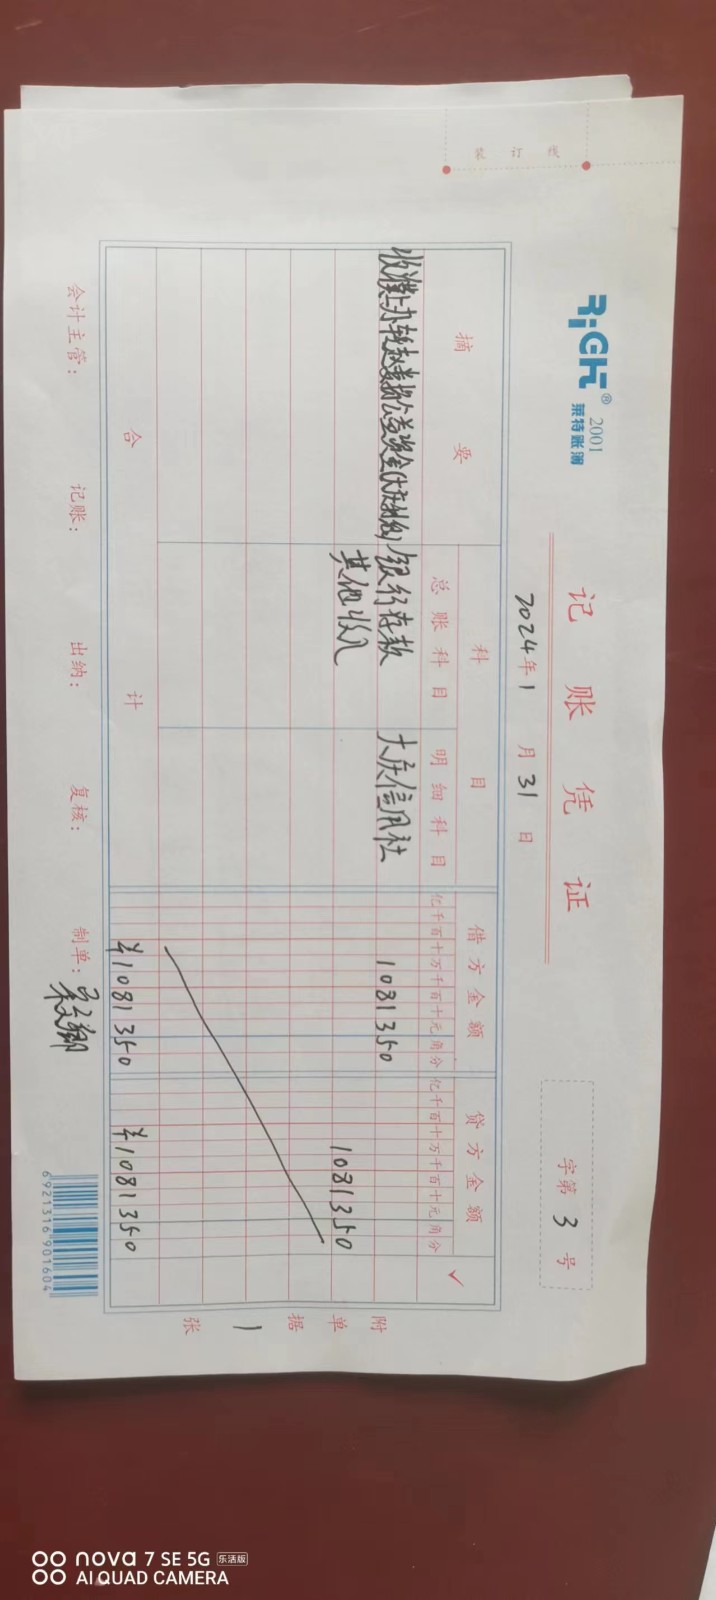 装订线
RiGHT® 2001
莱特账簿
记账凭证
2024年1月31日
字第3号
摘要 科目 借方金额 贷方金额 ✓
总账科目 明细科目 亿千百十万千百十元角分 亿千百十万千百十元角分
收滩上办转赵 公益资金 银行存款 大庆信用社 1081350
其他收入 1081350
合计 ¥1081350 ¥1081350
附单据1张
会计主管: 记账: 出纳: 复核: 制单:
6921316901604
nova 7 SE 5G 乐活版
AI QUAD CAMERA